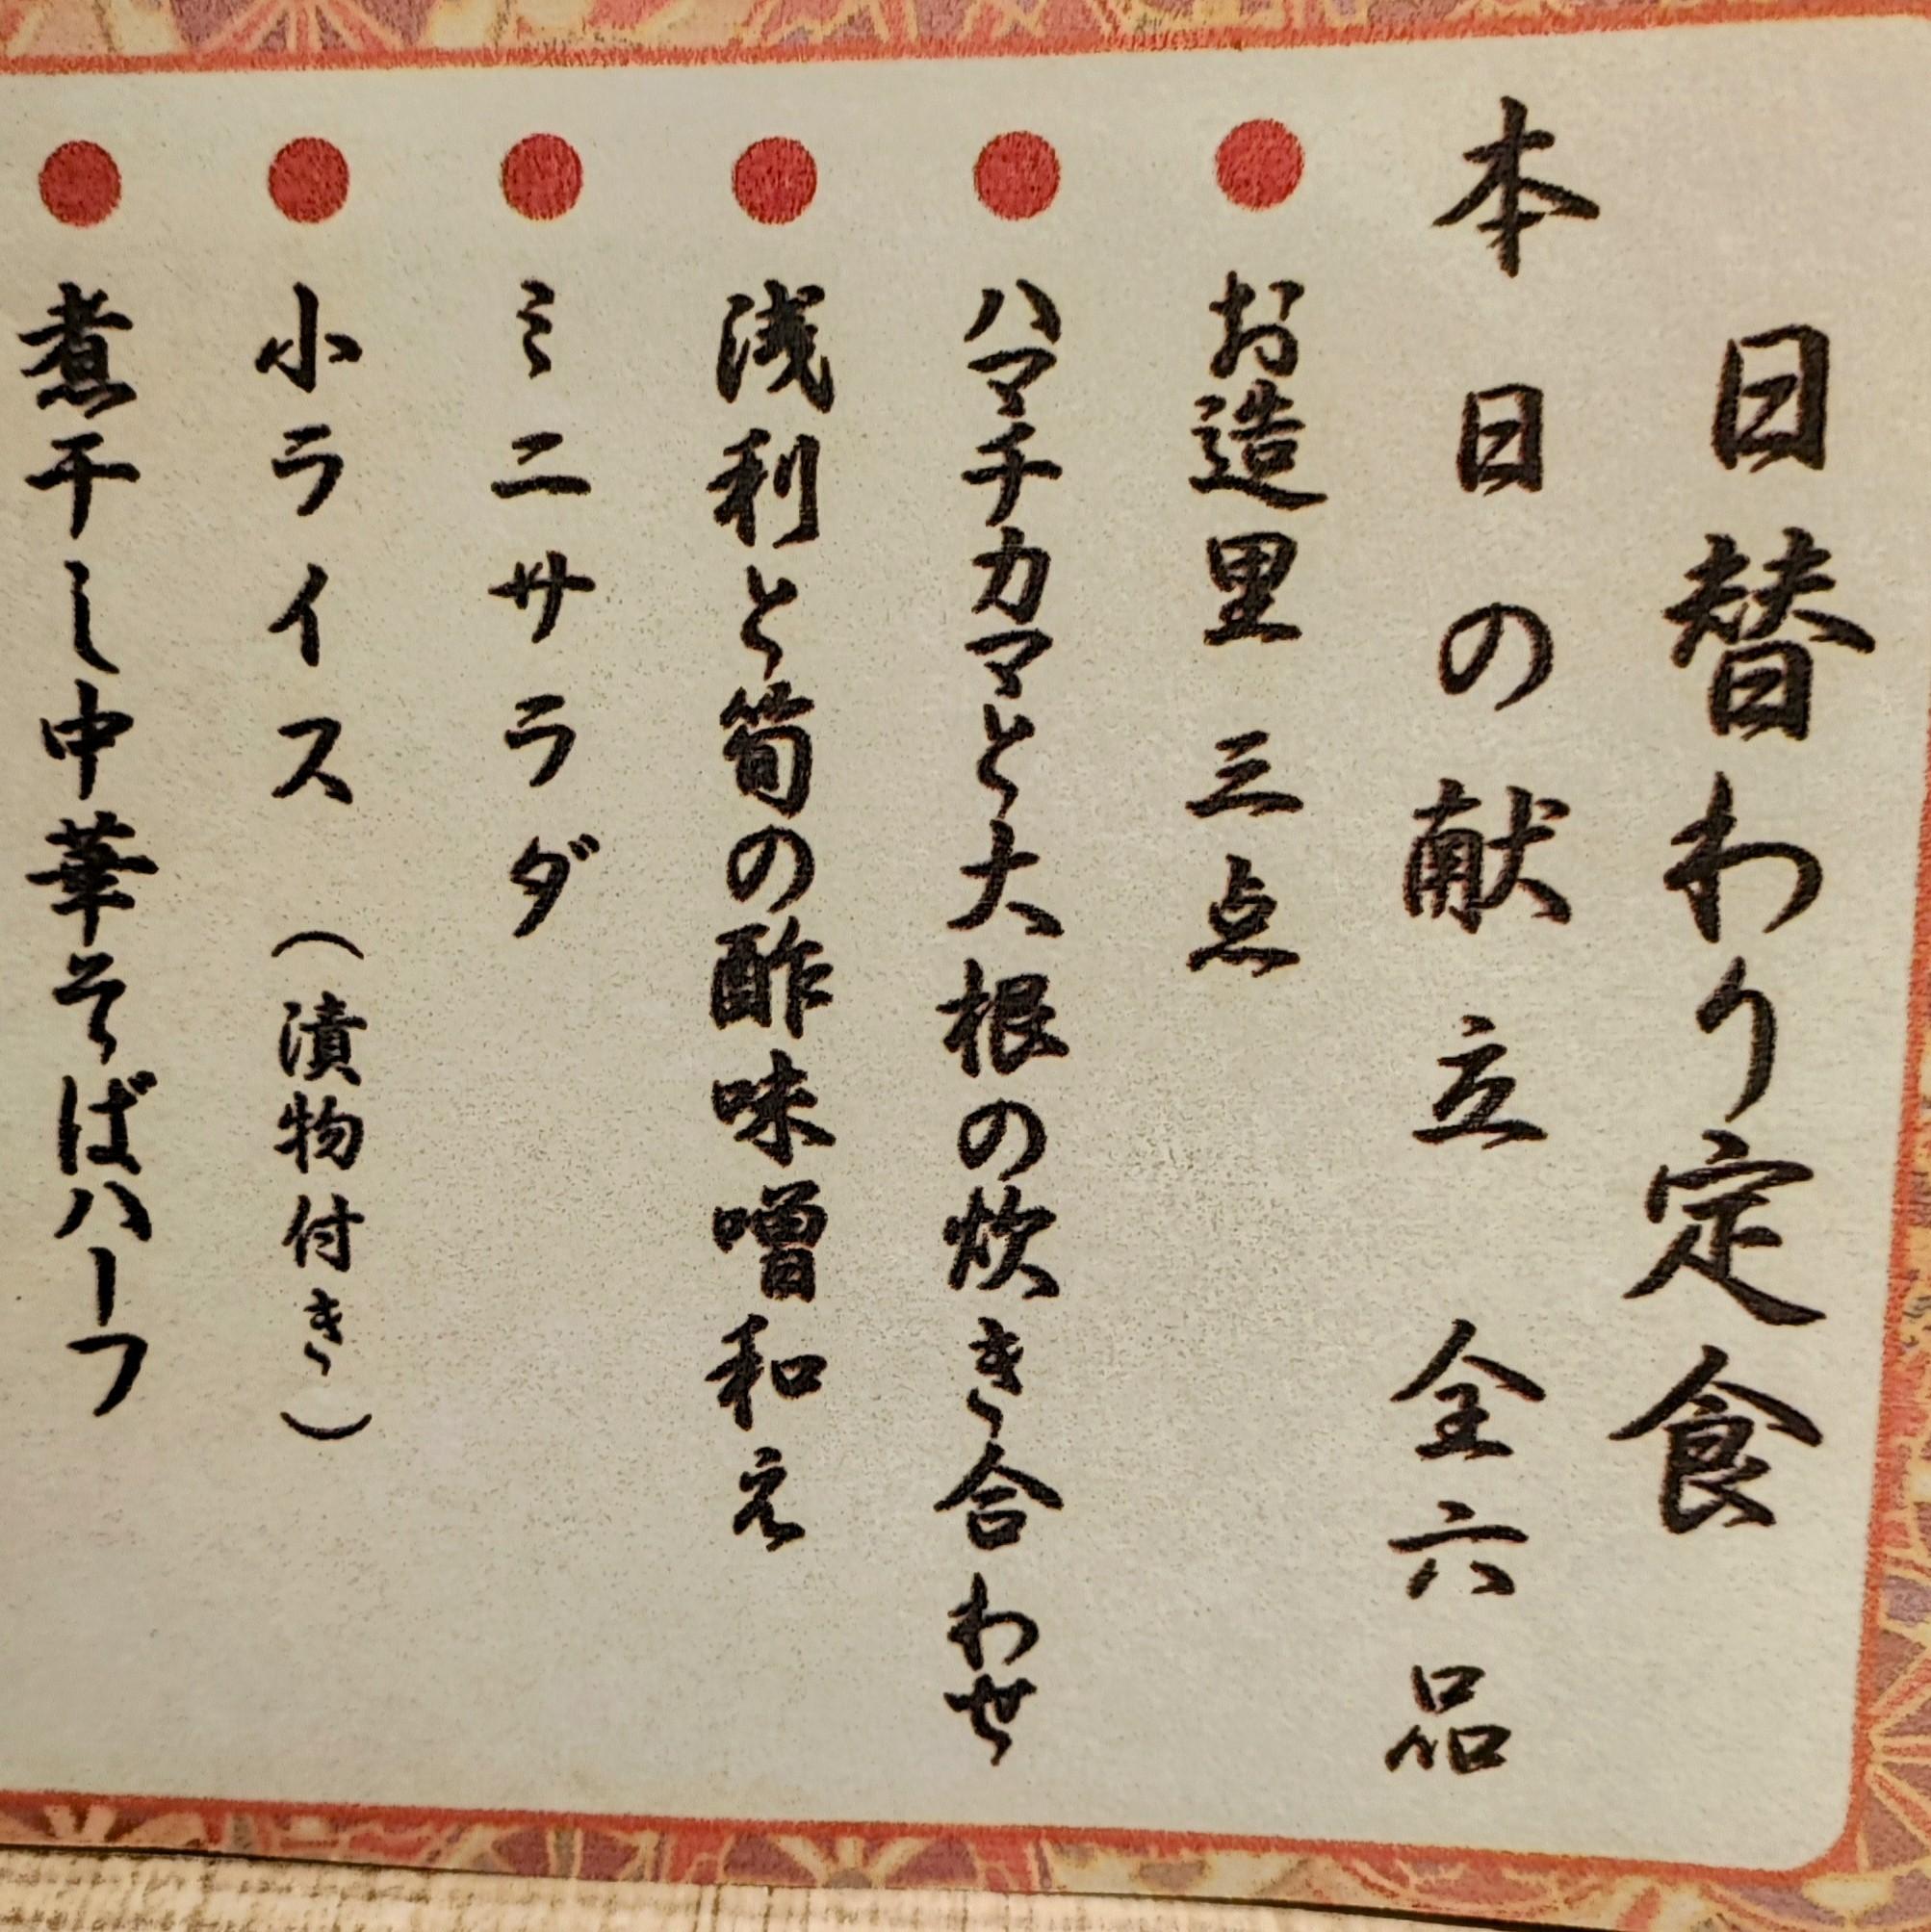 日替わり定食
本日の献立 全六品
お造里 三点
ハマチカマと大根の炊き合わせ
浅利と筍の酢味噌和え
ミニサラダ
小ライス（漬物付き）
煮干し中華そばハーフ